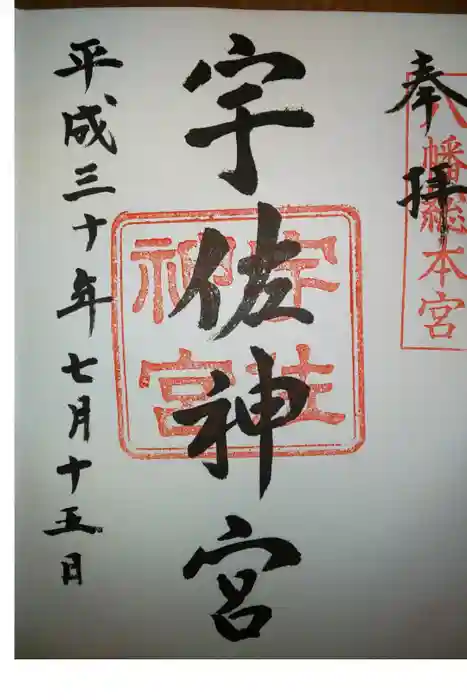 奉拝
八幡総本宮
宇佐神宮
宇佐神宮
平成三十年七月十五日